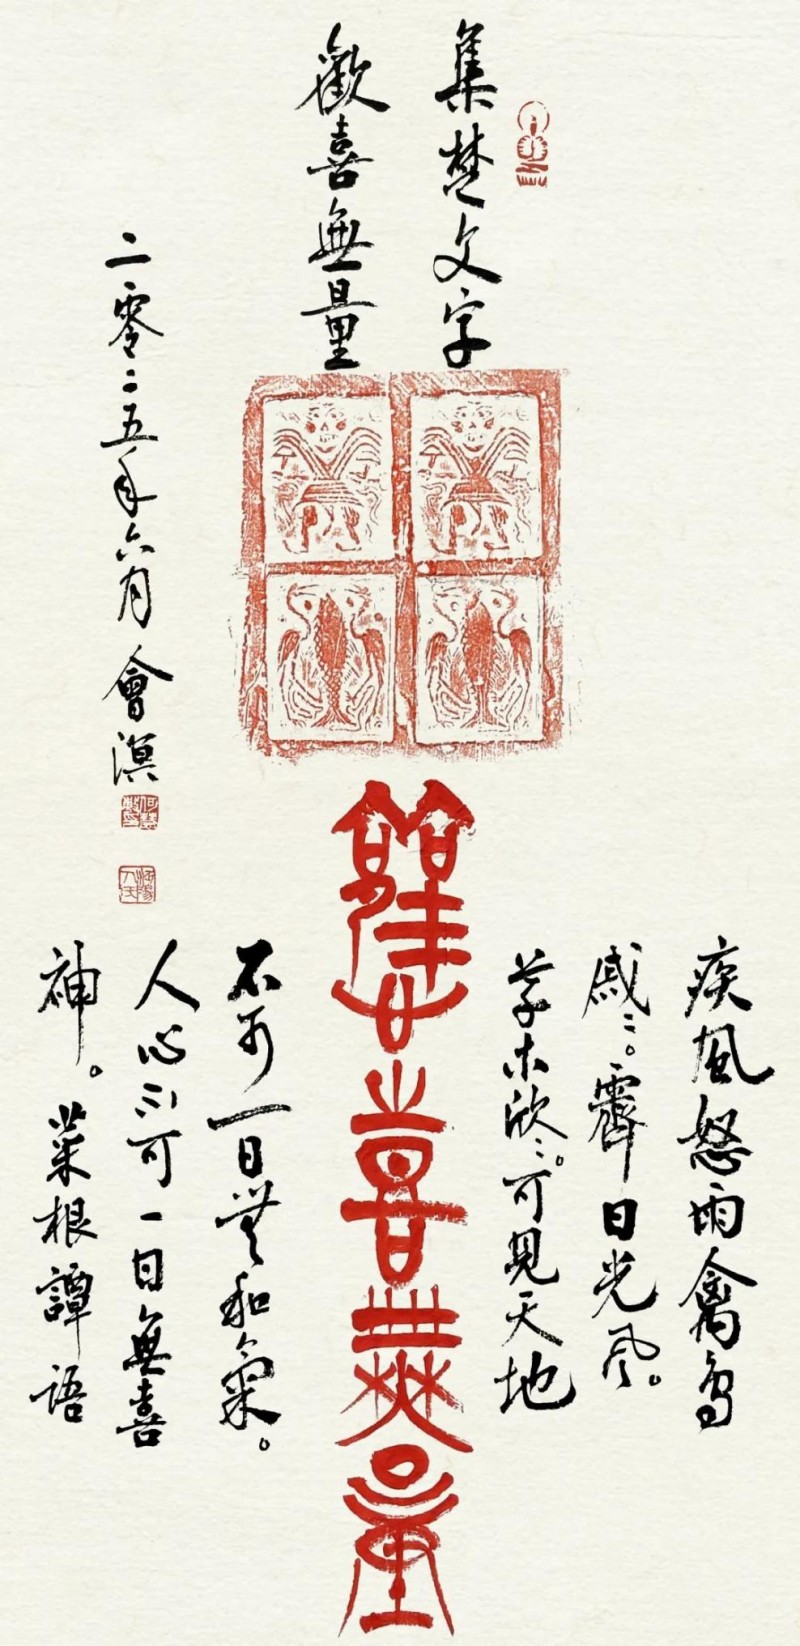 集楚文字
歡喜無量
二零二五年六月 會溟
歡喜無量
疾風怒雨禽鳥
戚〻。霽日光風。
草木欣〻。可見天地
不可一日無和氣。
人心不可一日無喜
神。菜根譚語